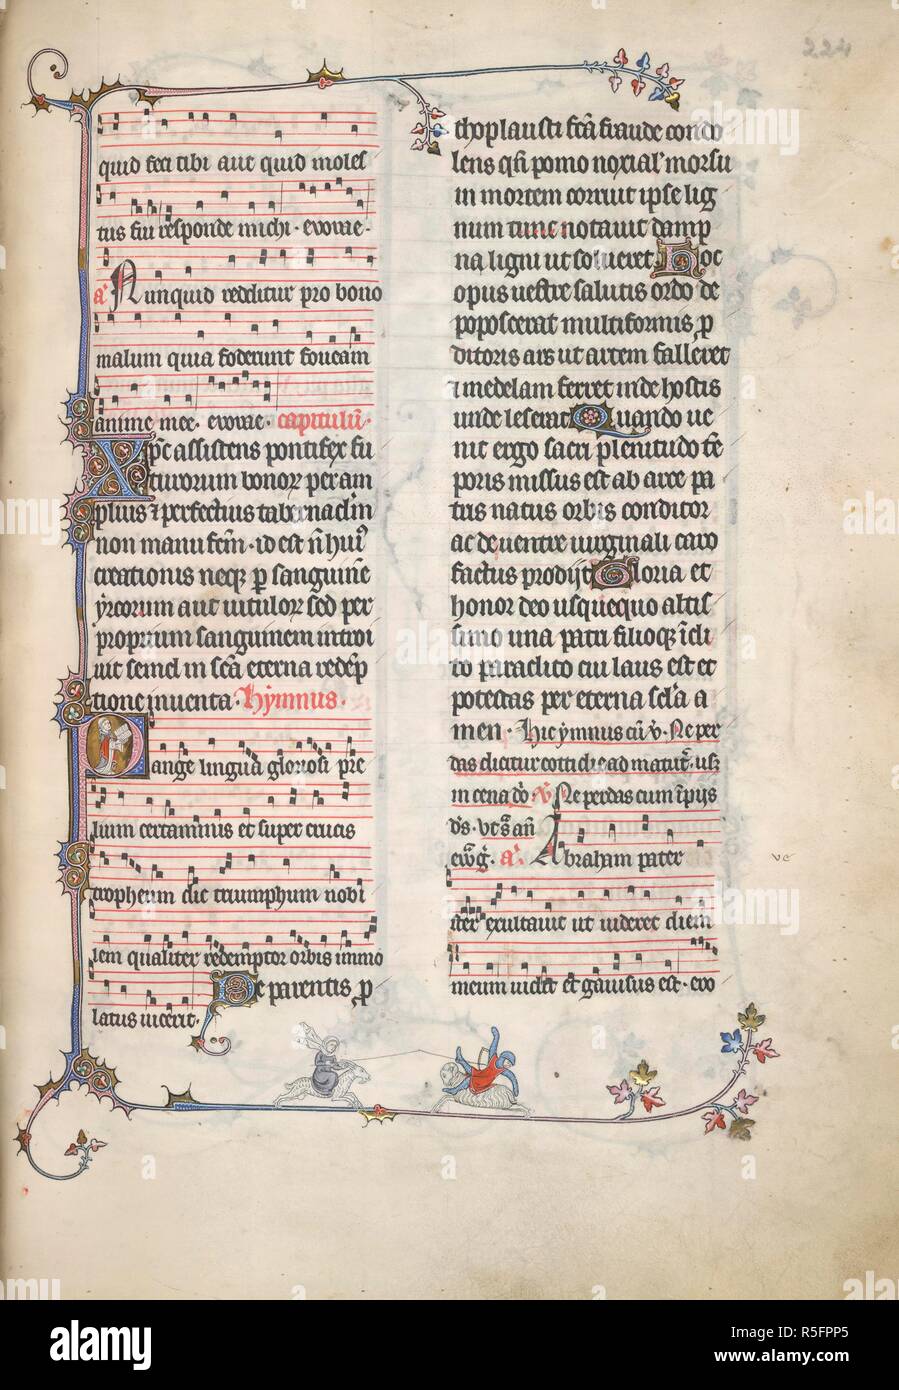 224
quid feci tibi aut quid moles
tus fui responde michi · evovae ·
a Nunquid redditur pro bono
malum quia foderunt foueam
anime mee · evovae · capitulū ·
Xpc assistens pontifex fu
turorum bonoꝝ per am
plius ⁊ perfectius tabernaclm̄
non manu fcm̄ · id est nͦ huiꝰ
creationis neqꝫ ꝑ sanguinē
yrcorum aut uituloꝝ sed per
proprium sanguinem introi
uit semel in scā eterna redēp
tione inuenta · Hymnus ·
Pange lingua gloriosi pre
lium certaminis et super crucis
tropheum dic triumphum nobi
lem qualiter redemptor orbis immo
latus uicerit · De parentis ꝓ
thoplausti fcā fraude condo
lens qn̄ pomo noxialˈ morsu
in mortem corruit ipse lig
num tunc notauit damp
na ligni ut solueret Hoc
opus nostre salutis ordo de
poposcerat multiformis ꝓ
ditoris ars ut artem falleret
⁊ medelam ferret inde hostis
unde leserat Quando ue
nit ergo sacri plenitudo tē
poris missus est ab arce pa
tris natus orbis conditor
ac de uentre uirginali caro
factus prodijt Gloria et
honor deo usquequo altis
simo una patri filioqꝫ īcli
to paraclito cui laus est et
potestas per eterna scl̄a a
men · Hic ymnus cū v̄ · Ne per
das dicitur cotidie ad matut̄ · usqꝫ
in cena dō · v̄ Ne perdas cum īpijs
ds̄ · ut sͣ an̄
ew̄ḡ · a Abraham pater
ue
ster exultauit ut uideret diem
meum uidit et gauisus est · evo
alamy
Image ID: R5FPP5
www.alamy.com